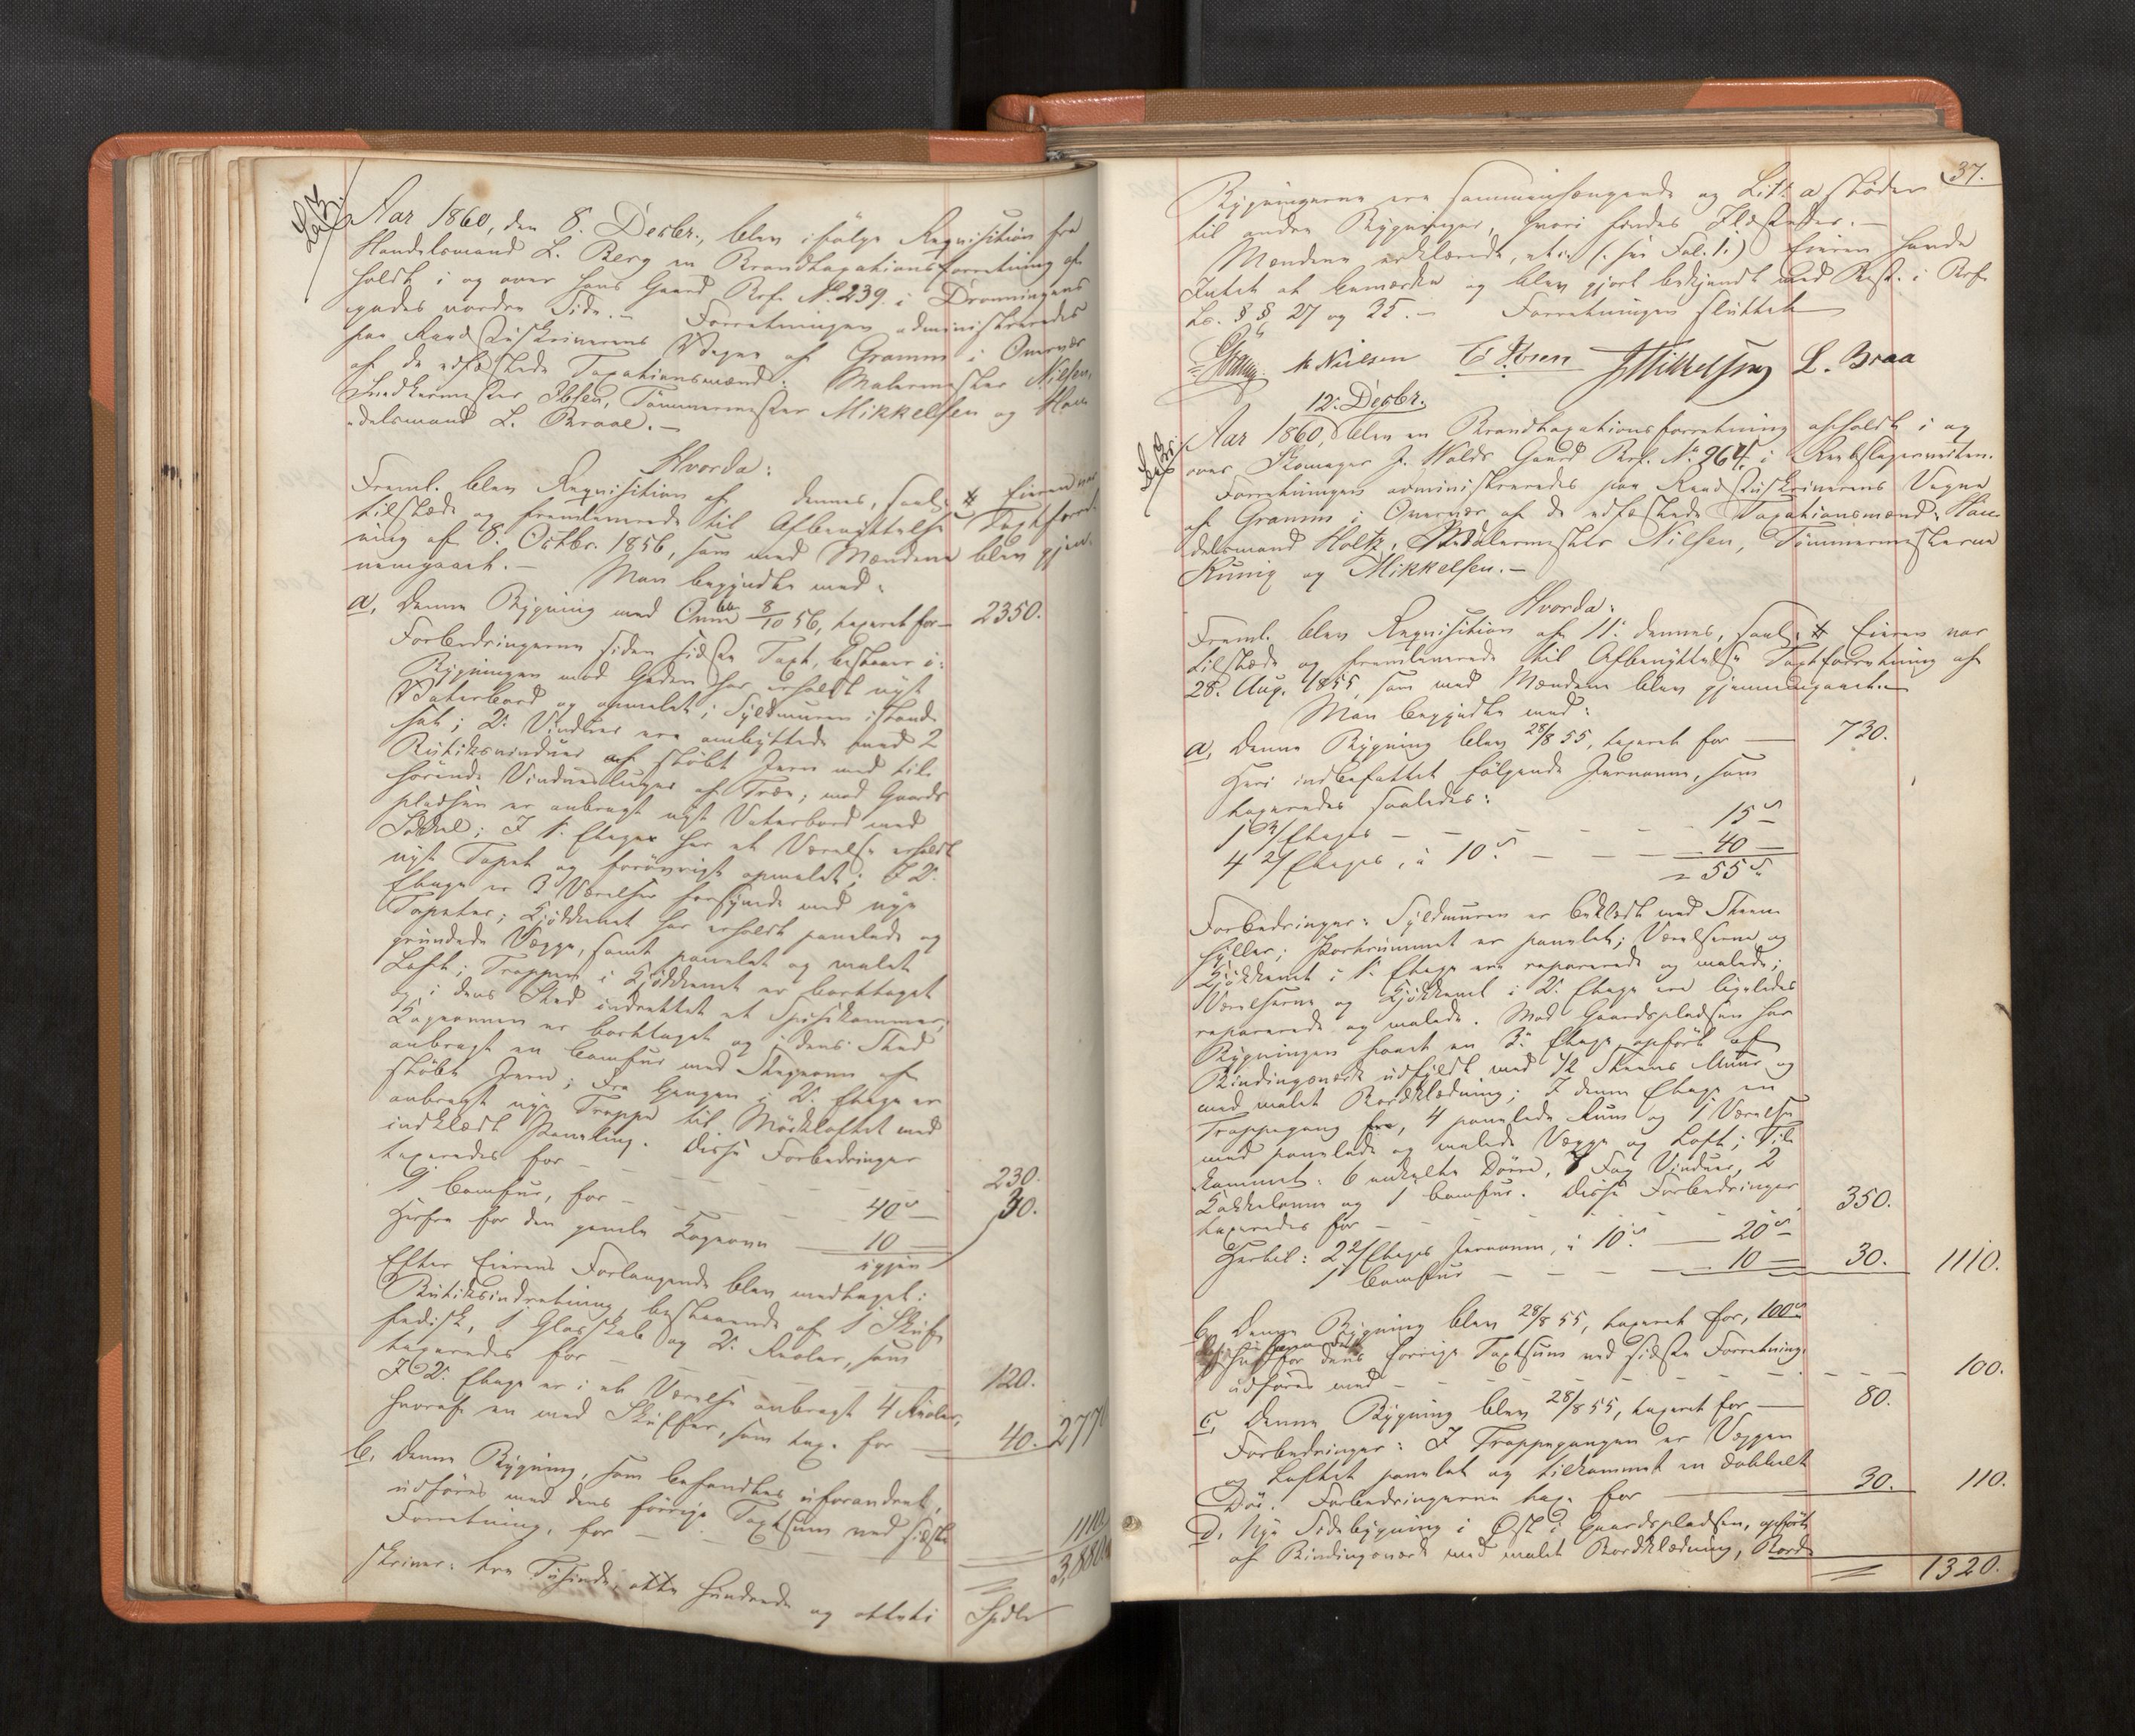 Aar 1860, den 8. Decbr., blev ifølge Requisition fra
Handelsmand L. Berg en Brandtaxationsforretning af-
holdt i og over hans Gaard Brf. No. 239. i Dronningens
gades nordre Side. – Forretningen administreredes
paa Raadstuskriverens Vegne af Gramm i Overvær
af de edfæstede Taxationsmænd: Malermester Nilsen,
Snedkermester Ibsen, Tømmermester Mikkelsen og Han-
delsmand L. Braae. –
Hvorda:
Freml. blev Requisition af dennes, saal. # Eieren var
tilstæde og fremleverede til Afbenyttelse Taxtforret-
ning af 8. Octbr. 1856, som med Mændene blev gjen-
nemgaaet. – Man begyndte med:
a, Denne Bygning med Ovne blev 8/10 56, taxeret for – 2350.
Forbedringerne siden sidste Taxt, bestaaer i:
Bygningen mod Gaden har erholdt nyt
Vaterbord og opmalet; Syldmuren istand-
sat; 2 Vinduer ere ombyttede med 2
Butiksvinduer af støbt Jern med til-
hørende Vinduesluger af Træ; mod Gaards-
pladsen er anbragt nyt Vaterbord med
Sokkel; I 1. Etage har et Værelse erholdt
nyt Tapet og forøvrigt opmalet; I 2.
Etage er 3 Værelser forsynede med nye
Tapeter; Kjøkkenet har erholdt panelede og
grundede Vægge, samt panelet og malet
Loft; Trappen i Kjøkkenet er borttaget
og i dens Sted indrettet et Spisekammer;
Kogeovnen er borttaget og i dens Sted
anbragt en Comfur med Stegeovn af
støbt Jern; Fra Gangen i 2. Etage er
anbragt nye Trappe til Mørkloftet med
indklædt Paneling. Disse Forbedringer
taxeredes for – – – – – 230.
1 Comfur, for – – – 40 –
Herfra for den gamle Kogeovn 10 – 30.
igjen
Efter Eierens Forlangende blev medtaget:
Butiksindretning, bestaaende af 1 Skuf-
fedisk, 1 Glasskab og 2 Reoler, som
taxeredes for – – – – 120.
I 2. Etage er i et Værelse anbragt 4 Reoler,
hvoraf en med Skuffer, som tax. for – 40. 2770
b, Denne Bygning, som befandtes uforandret,
udføres med dens forrige Taxtsum ved sidste
Forretning, for – – 1110
3,880
skriver: tre Tusinde, otte Hundrede og otteti Spdlr
37.
Bygningerne ere sammenhængende og Litr. a støder
til andre Bygninger, hvori findes Ildsteder. –
Mændene erklærede, etc. (: see Fol. 1 :) Eieren havde
Intet at bemærke og blev gjort bekjendt med Best. i Brf.
Lv. §§ 27 og 25. – Forretningen sluttet
Gramm. A Nilsen C Ibsen J Mikkelsen L. Braa
12. Decbr.
Aar 1860, blev en Brandtaxationsforretning afholdt i og
over Skomager J. Wolds Gaard Brf. No. 264. i Reebslagerveiten.
Forretningen administreredes paa Raadstuskriverens Vegne
af Gramm i Overvær af de edfæstede Taxationsmænd: Han-
delsmand Holtz, Malermester Nilsen, Tømmermesterne
Kunig og Mikkelsen. –
Hvorda:
Freml. blev Requisition af 11. dennes, saal. # Eieren var
tilstæde og fremleverede til Afbenyttelse Taxtforretning af
28. Aug. 1855, som med Mændene blev gjennemgaaet. –
Man begyndte med:
a, Denne Bygning blev 28/8 55, taxeret for – 730.
Heri indbefattet følgende Jernovne, som
taxeredes saaledes:
1 3/Etages – – – – 15
4 2/Etages, à 10 – – – 40 –
= 55
Forbedringer: Syldmuren er beklædt med Steen-
heller; Portrummet er panelet; Værelserne og
Kjøkkenet i 1. Etage ere reparerede og malede;
Værelserne og Kjøkkenet i 2. Etage ere ligeledes
reparerede og malede. Mod Gaardspladsen har
Bygningen faaet en 3. Etage, opført af
Bindingsværk udfyldt med 1/2 Steens Muur og
med malet Bordklædning; I denne Etage en
Trappegang, 4 panelede Rum og 1 Værelse
med panelede og malede Vægge og Loft; Til-
kommet: 6 enkelte Døre, 8 Fag Vinduer, 2
Kakkelovne og 1 Comfur. Disse Forbedringer
taxeredes for – – – – 350.
Hertil: 2 2/Etages Jernovne, à 10 – 20
1 Comfur – – – – 10 – 30. 1110.
b, Denne Bygning blev 28/8 55, taxeret for, 100
for dens forrige Taxtsum ved sidste Forretning
udføres med – – – – – – 100.
c, Denne Bygning blev 28/8 55, taxeret for – 80.
Forbedringer: I Trappegangen er Væggen
og Loftet panelet og tilkommet en dobbelt
Dør. Forbedringerne tax. for – 30. 110.
d, Nye Sidebygning i Øst i Gaardspladsen, opført
af Bindingsværk med malet Bordklædning, Bord-
1320.